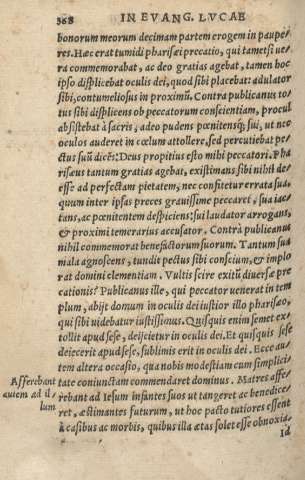 368 IN EVANG. LVCAE
bonorum meorum decimam partem erogem in paupe-
res. Hæc erat tumidi pharisæi precatio, qui tametsi ue-
ra commemorabat, ac deo gratias agebat, tamen hoc
ipso displicebat oculis dei, quod sibi placebat: adulator
sibi, contumeliosus in proximū. Contra publicanus to-
tus sibi displicens ob peccatorum conscientiam, procul
absistebat à sacris, adeo pudens pœnitensq; sui, ut nec
oculos auderet in cœlum attollere, sed percutiebat pe-
ctus suū dicēs: Deus propitius esto mihi peccatori. Pha
risæus tantum gratias agebat, existimans sibi nihil de-
esse ad perfectam pietatem, nec confitetur errata sua,
quum inter ipsas preces grauissime peccaret, sua iac-
tans, ac pœnitentem despiciens: sui laudator arrogans,
& proximi temerarius accusator. Contrà publicanus
nihil commemorat benefactorum suorum. Tantum sua
mala agnoscens, tundit pectus sibi conscium, & implo
rat domini clementiam. Vultis scire exitū diuersæ pre
cationis? Publicanus ille, qui peccator uenerat in tem
plum, abijt domum in oculis dei iustior illo pharisæo,
qui sibi uidebatur iustissimus. Quisquis enim semet ex-
tollit apud sese, deijcietur in oculis dei. Et quisquis sese
deiecerit apud sese, sublimis erit in oculis dei. Ecce au-
tem altera occasio, qua nobis modestiam cum simplici
Afferebant tate coniunctam commendaret dominus. Matres affe-
autem ad il rebant ad Iesum infantes suos ut tangeret ac benedice
lum ret, æstimantes futurum, ut hoc pacto tutiores essent
à casibus ac morbis, quibus illa ætas solet esse obnoxia.
Id